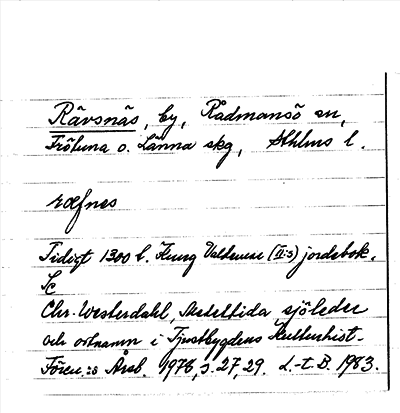 Rävsnäs, by, Rådmansö sn,
Frötuna o. Länna skg, Sthlms l.
ræfnes
Tidigt 1300 t. Kung Valdemars (II:s) jordebok.
Sc
Chr. Westerdahl, Medeltida sjöleder
och ortnamn i Tjustbygdens Kulturhist-
Fören:s Årsb. 1976, s. 27, 29. L.-t. B. 1983.